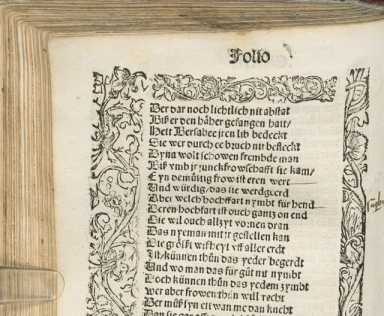 Folio
Der dar noch liehtlich nit abstat
Biß er den häher gefangen hatt/
Hett Bersabee jren lib bedeckt
Sie wer durch ee bruch nit befleckt
Dyna wolt schowen frembde man
Biß vmb jr junckfrowschafft sie kam/
Eyn demütig frow ist eren wert
Und würdig/ das sie werd geerd
Aber welch hochffart nymbt für hend
Deren hochfart ist ouch gantz on end
Die wil ouch allzyt vornen dran
Das nyeman mit jr gestellen kan
Die gröst wißheyt vff aller erdt
Ist/ können thůn das yeder begerdt
Und wo man das für gůt nit nymbt
Doch können thůn das yedem zymbt
wer aber frowen thůn will recht
Der můß syn ett wan me dan knecht